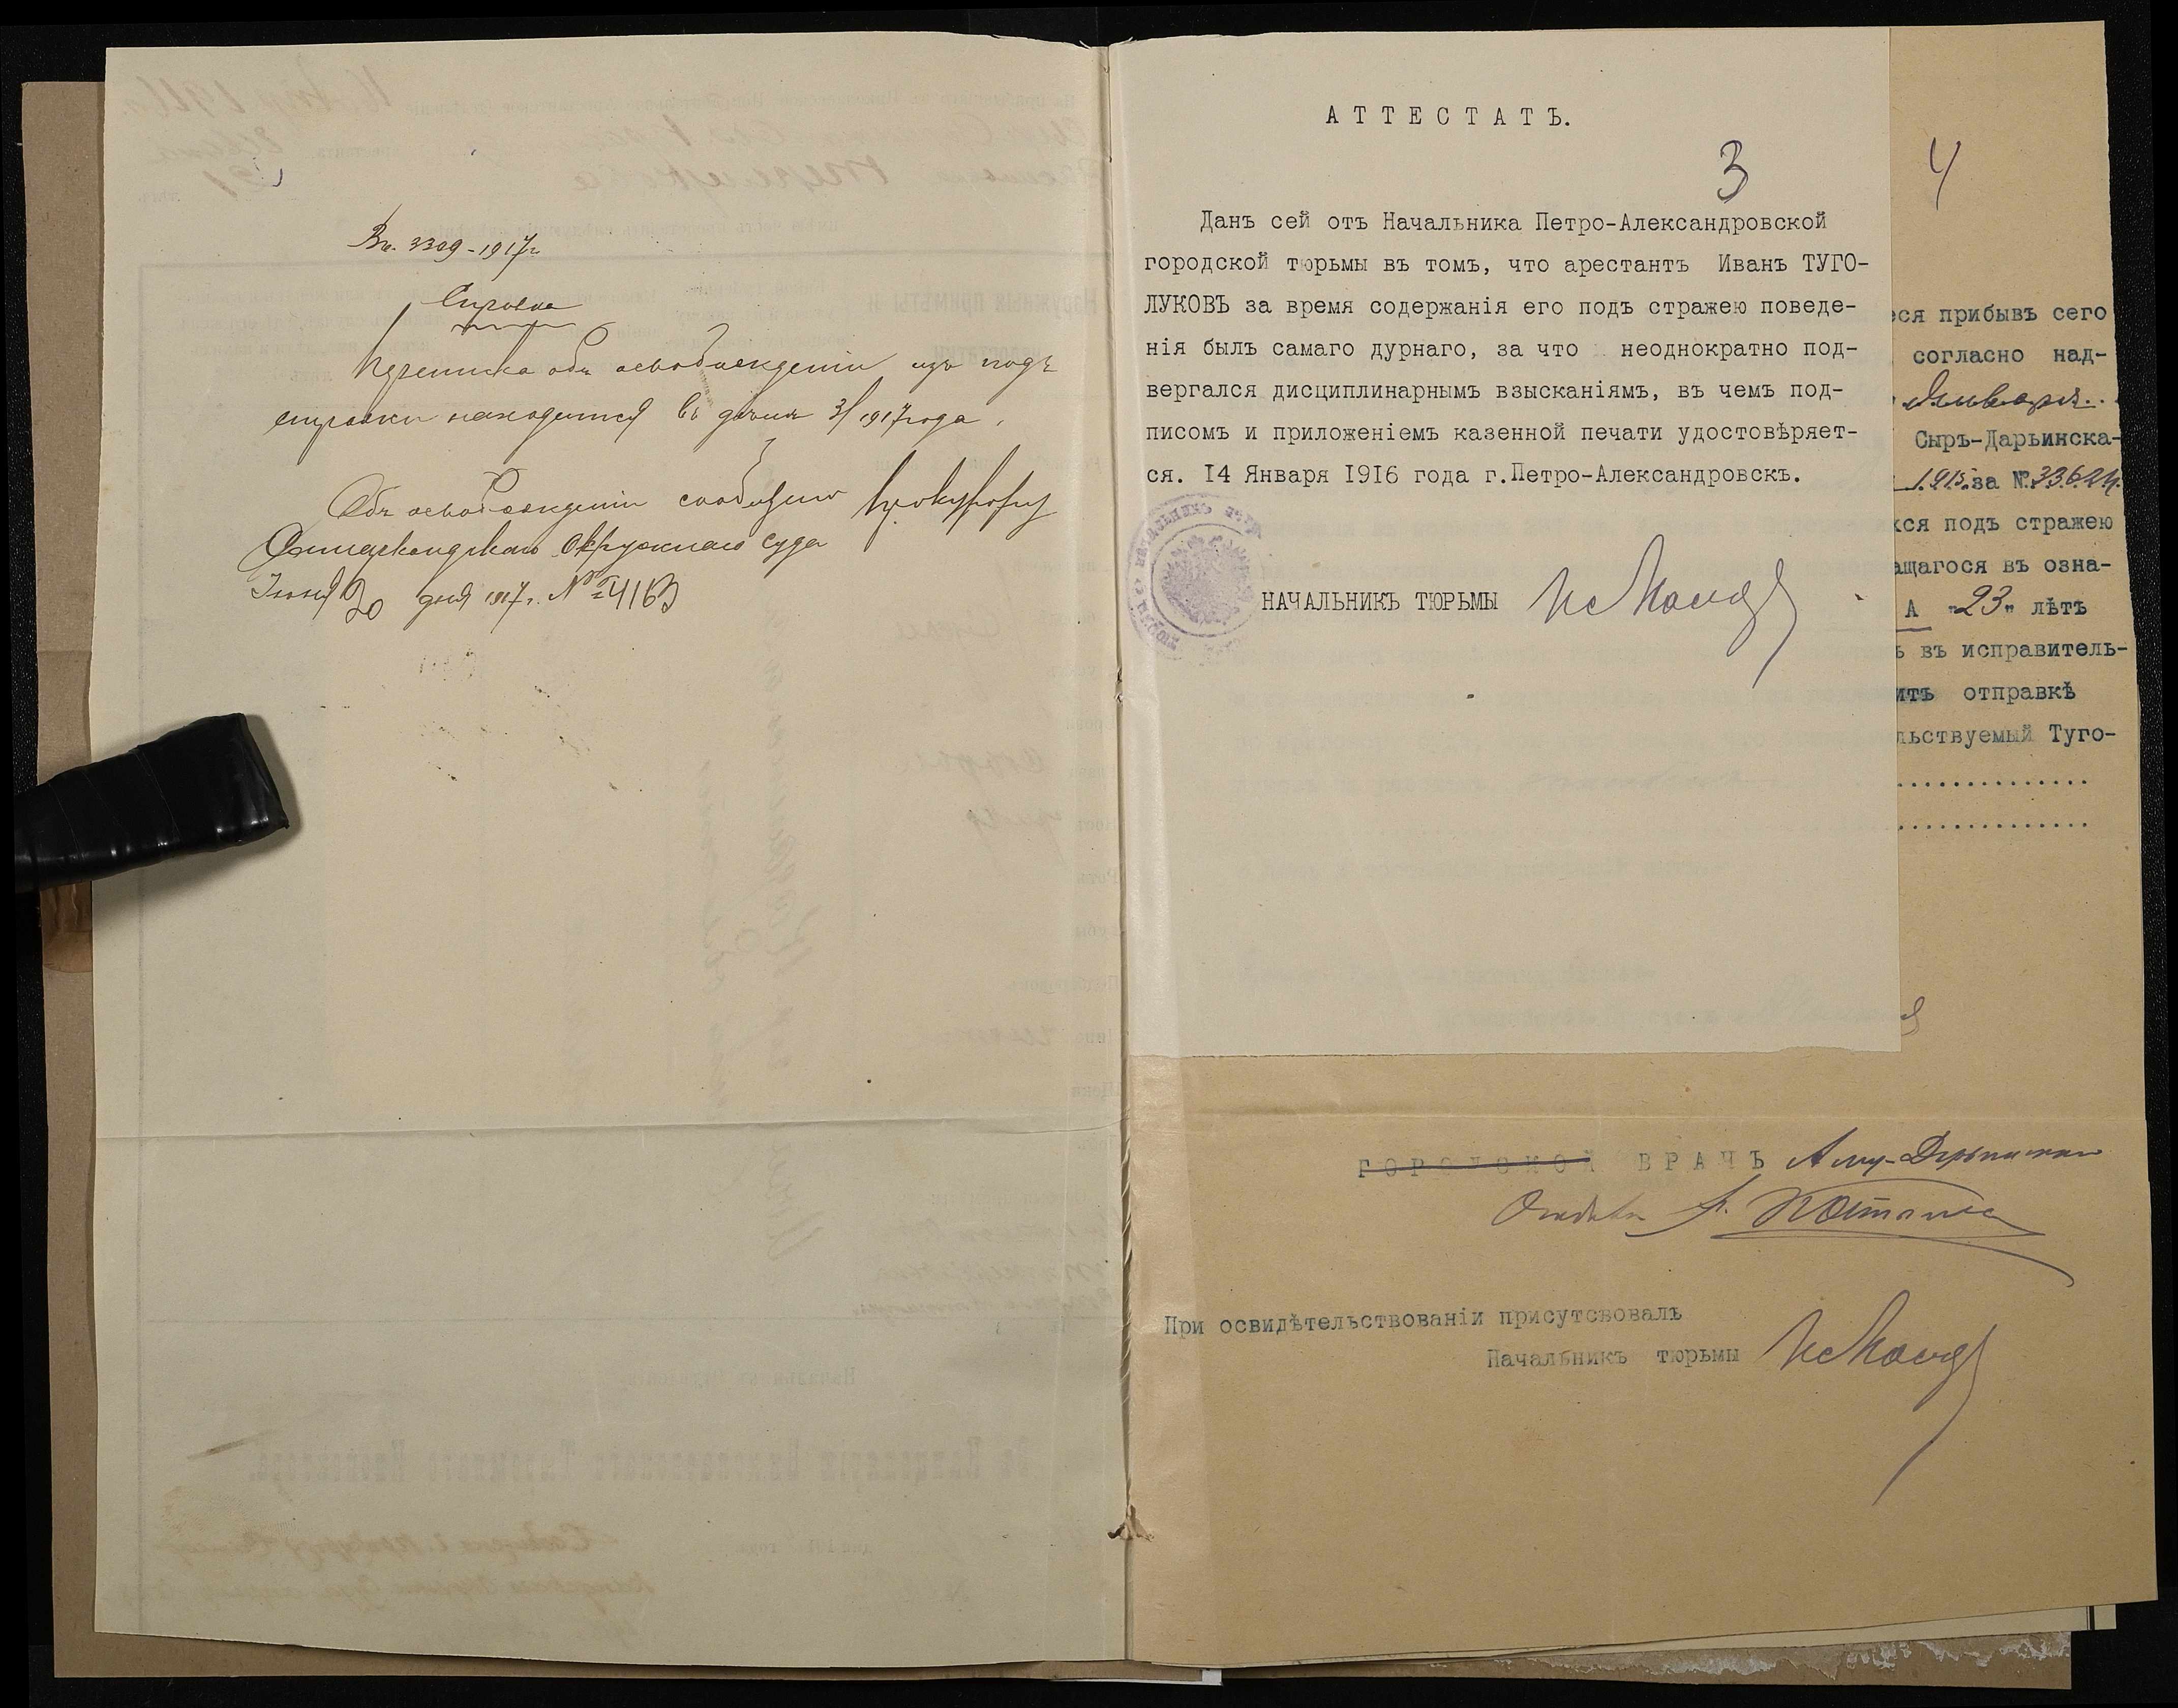 Вх. 3309-1917г.
Справка
Переписка объ освобожденіи изъ подъ
стражи находится въ дѣлѣ 3/1917 года.
Объ освобожденіи сообщено Прокурору
Окружнаго Суда
Іюня 20 дня 1917 г. № 4163
АТТЕСТАТЪ.
3
Данъ сей отъ Начальника Петро-Александровской
городской тюрьмы въ томъ, что арестантъ Иванъ ТУГО-
ЛУКОВЪ за время содержанія его подъ стражею поведе-
нія былъ самаго дурнаго, за что неоднократно под-
вергался дисциплинарнымъ взысканіямъ, въ чемъ под-
писомъ и приложеніемъ казенной печати удостовѣряет-
ся. 14 Января 1916 года г.Петро-Александровскъ.
НАЧАЛЬНИКЪ ТЮРЬМЫ
4
еся прибывъ сего
согласно над-
Января
Сыръ-Дарьинска-
1915 за №.33624.
хся подъ стражею
ащагося въ озна-
А "23" лѣтъ
ъ въ исправитель-
итъ отправкѣ
льствуемый Туго-
...............
...............
ГОРОДСКОЙ ВРАЧЪ Аму-Дарьинскаго
Отдѣла
При освидѣтельствованіи присутсвовалъ
Начальникъ тюрьмы